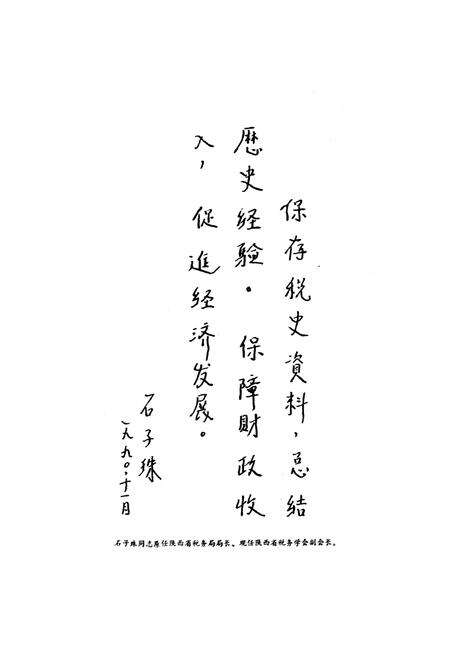 保存税史資料，总結
歷史經驗。保障財政收
入，促進经济发展。
石子珠
一九九〇.十一月
石子珠同志原任陕西省税务局局长、现任陕西省税务学会副会长。